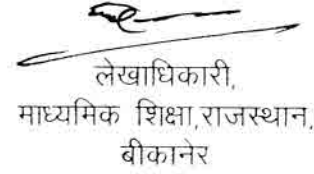 लेखाधिकारी,
माध्यमिक शिक्षा,राजस्थान,
बीकानेर